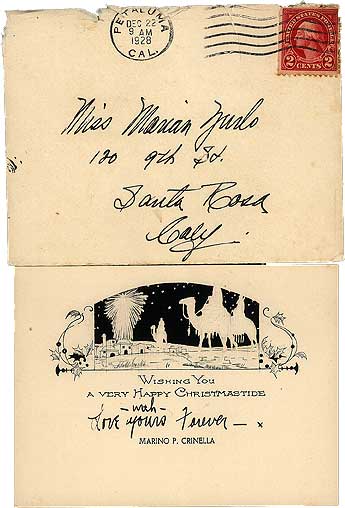 PETALUMA
DEC 22
9 AM
1928
CAL.
UNITED STATES POSTAGE
2 CENTS 2
Miss Marian Zurlo
120 9th St.
Santa Rosa
Calif.
WISHING YOU
A VERY HAPPY CHRISTMASTIDE
- wah -
Love yours Forever - x
MARINO P. CRINELLA